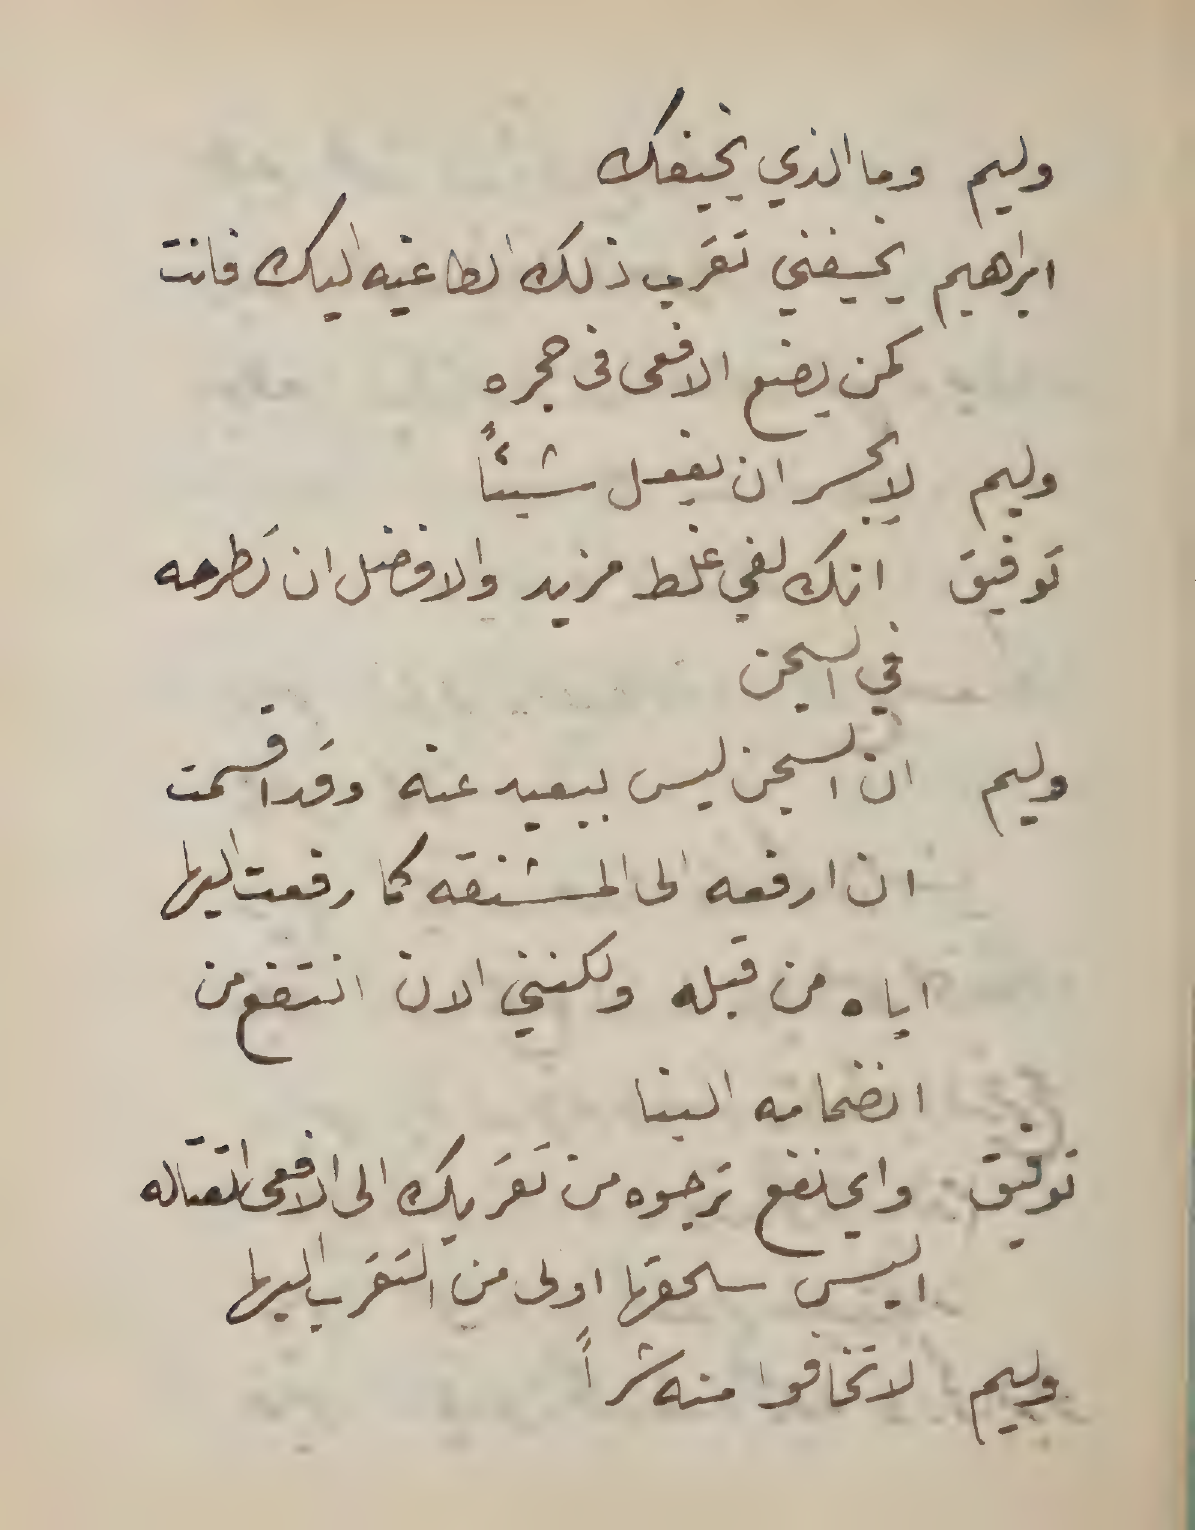 وليم وما الذي يخيفك
ابراهيم يخيفني تقرب ذلك الطاغيه اليك فانت
كمن يضع الافعى فى حجره
وليم لا يجسر ان يفعل شيئاً
توفيق انك لفي غلط مزيد والافضل ان تطرحه
في السجن
وليم ان السجن ليس ببعيد عنه وقد اقسمت
ان ارفعه الى المشنقه كما رفعت اليها
اباه من قبله ولكنني الان انتفع من
انضمامه الينا
توفيق واي نفع ترجوه من تقريبك الى الافعى القتاله
اليس سحقها اولى من التقرب اليها
وليم لا تخافوا منه شراً